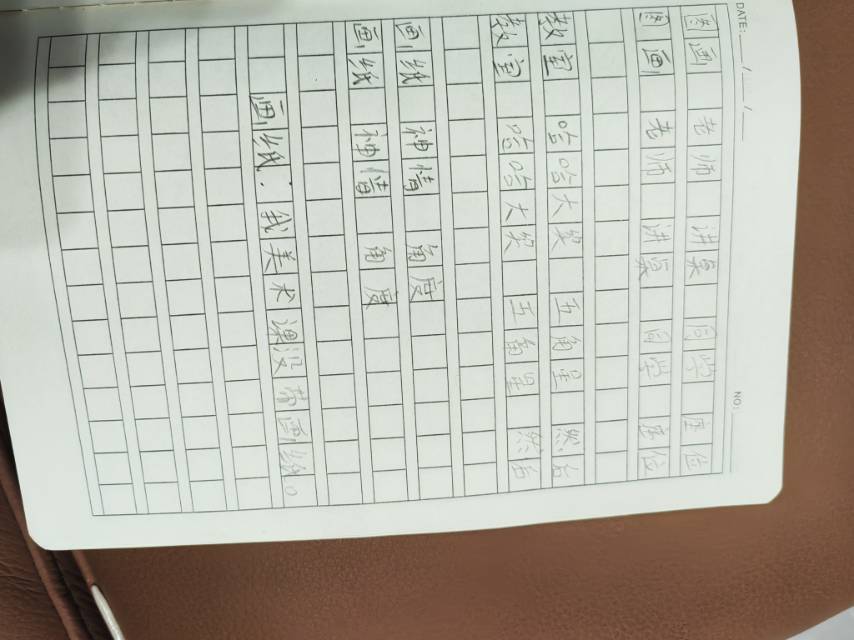 DATE: / /
NO:
图画 老师 讲桌 同学 座位
图画 老师 讲桌 同学 座位
教室 哈哈大笑 五角星 然后
教室 哈哈大笑 五角星 然后
画纸 神情 角度
画纸 神情 角度
画纸：我美术课没带画纸。